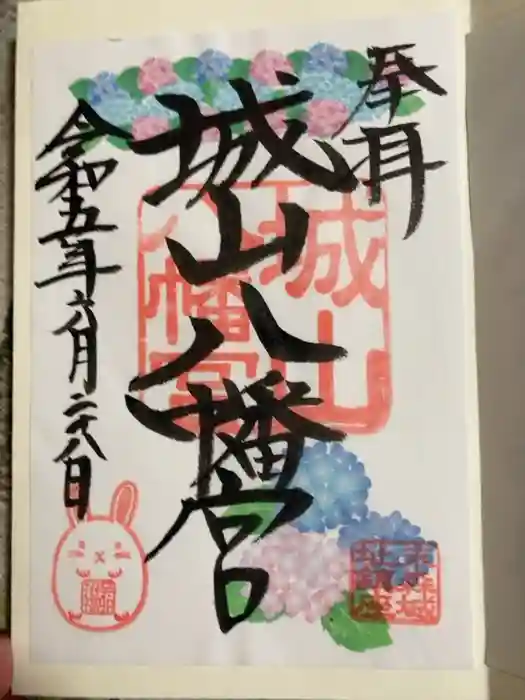 奉拝
城山八幡宮
令和五年六月二十八日
城山
八幡宮